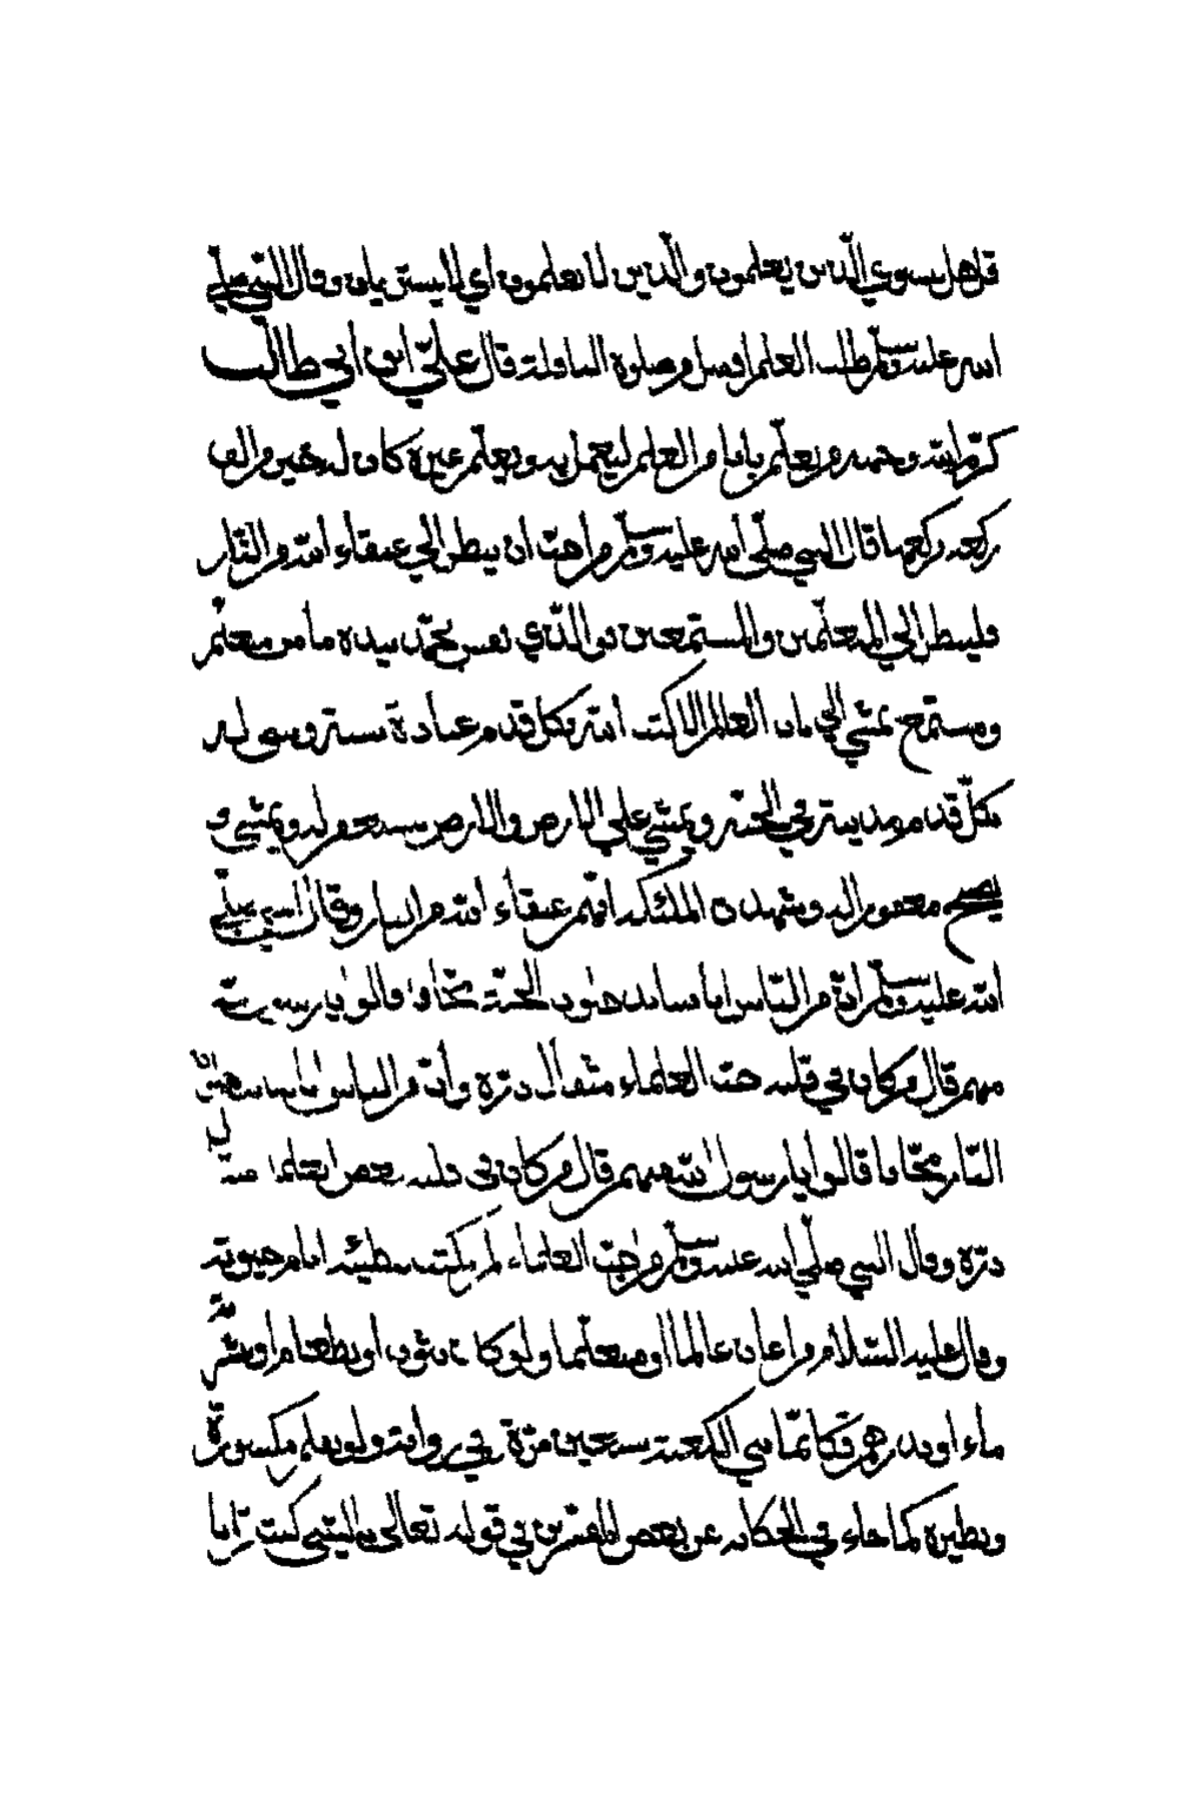 قل هل يستوي الذين يعلمون والذين لا يعلمون اي لا يستويان وقال النبي صلي
الله عليه وسلم طلب العلم افضل من صلوة النافلة قال علي ابن ابي طالب
كرم الله وجهه من تعلم بابا من العلم ليعمل به ويعلم غيره كان له خير من الف
ركعة ركعها قال النبي صلي الله عليه وسلم من احب ان ينظر الي عتقاء الله من النار
فلينظر الي المتعلمين والمستمعين فوالذي نفس محمد بيده ما من متعلم
ومستمع يمشي الي باب العالم الا كتب الله بكل قدم عبادة سنة وبني له
بكل قدم مدينة في الجنة ويمشي علي الارض والارض يستغفر له ويمشي و
يصبح مغفورا له وشهدت الملئكة انهم عتقاء الله من النار وقال النبي صلي
الله عليه وسلم ان من الناس اناسا يدخلون الجنة مجانا قالوا يا رسول الله
منهم قال من كان في قلبه حب العلماء مثقال ذرة وان من الناس اناسا يدخلون
النار مجانا قالوا يا رسول الله منهم قال من كان في قلبه بغض العلماء مثقال
ذرة وقال النبي صلي الله عليه وسلم من احب العلماء لم يكتب خطيئة ايام حيوته
وقال عليه السلام من اعان عالما او متعلما ولو كان بثوب او بطعام او بشربة
ماء او بدرهم فكانما بني الكعبة سبعين مرة في رواية ولو بقلم مكسورة
ونظيره كما جاء في الحكاية عن بعض المفسرين في قوله تعالى ياليتني كنت ترابا